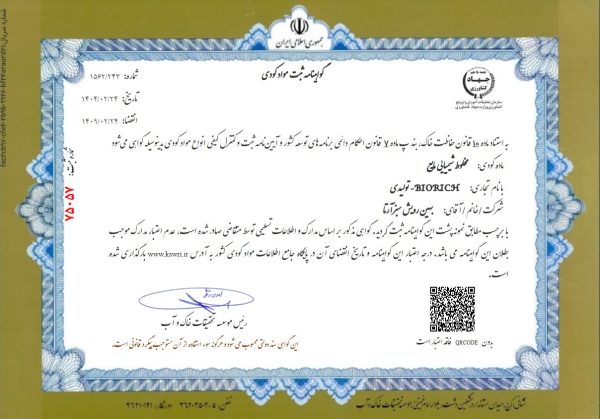 جمهوری اسلامی ایران
گواهینامه ثبت مواد کودی
شماره: ۱۵۶۲/۲۳۳
تاریخ: ۱۴۰۴/۰۲/۲۴
انقضا: ۱۴۰۹/۰۲/۲۴
شماره ثبت:
۷۵۰۵۷
همه با هم
جهاد
کشاورزی
سازمان تحقیقات، آموزش و ترویج کشاورزی
وزارت جهاد کشاورزی
به استناد ماده ۱۰ قانون حفاظت خاک، بند پ ماده ۷ قانون احکام دائمی برنامه های توسعه کشور و آیین نامه ثبت و کنترل کیفی انواع مواد کودی بدینوسیله گواهی می شود
ماده کودی: مخلوط شیمیایی مایع
با نام تجاری: BIORICH-تولیدی
شرکت / خانم / آقای: بهین رویش سبز آرتا
با برچسب مطابق نمونه پشت این گواهینامه ثبت گردید، گواهی مذکور بر اساس مدارک و اطلاعات تسلیمی توسط متقاضی صادر شده است. عدم اعتبار مدارک موجب
بطلان این گواهینامه می باشد، درجه اعتبار این گواهینامه و تاریخ انقضای آن در پایگاه جامع اطلاعات مواد کودی کشور به آدرس www.kswri.ir بارگذاری شده
است.
رئیس موسسه تحقیقات خاک و آب
بدون QRCODE فاقد اعتبار است
این گواهی سند دولتی محسوب می شود و هرگونه سوء استفاده از آن مستوجب پیگرد قانونی است.